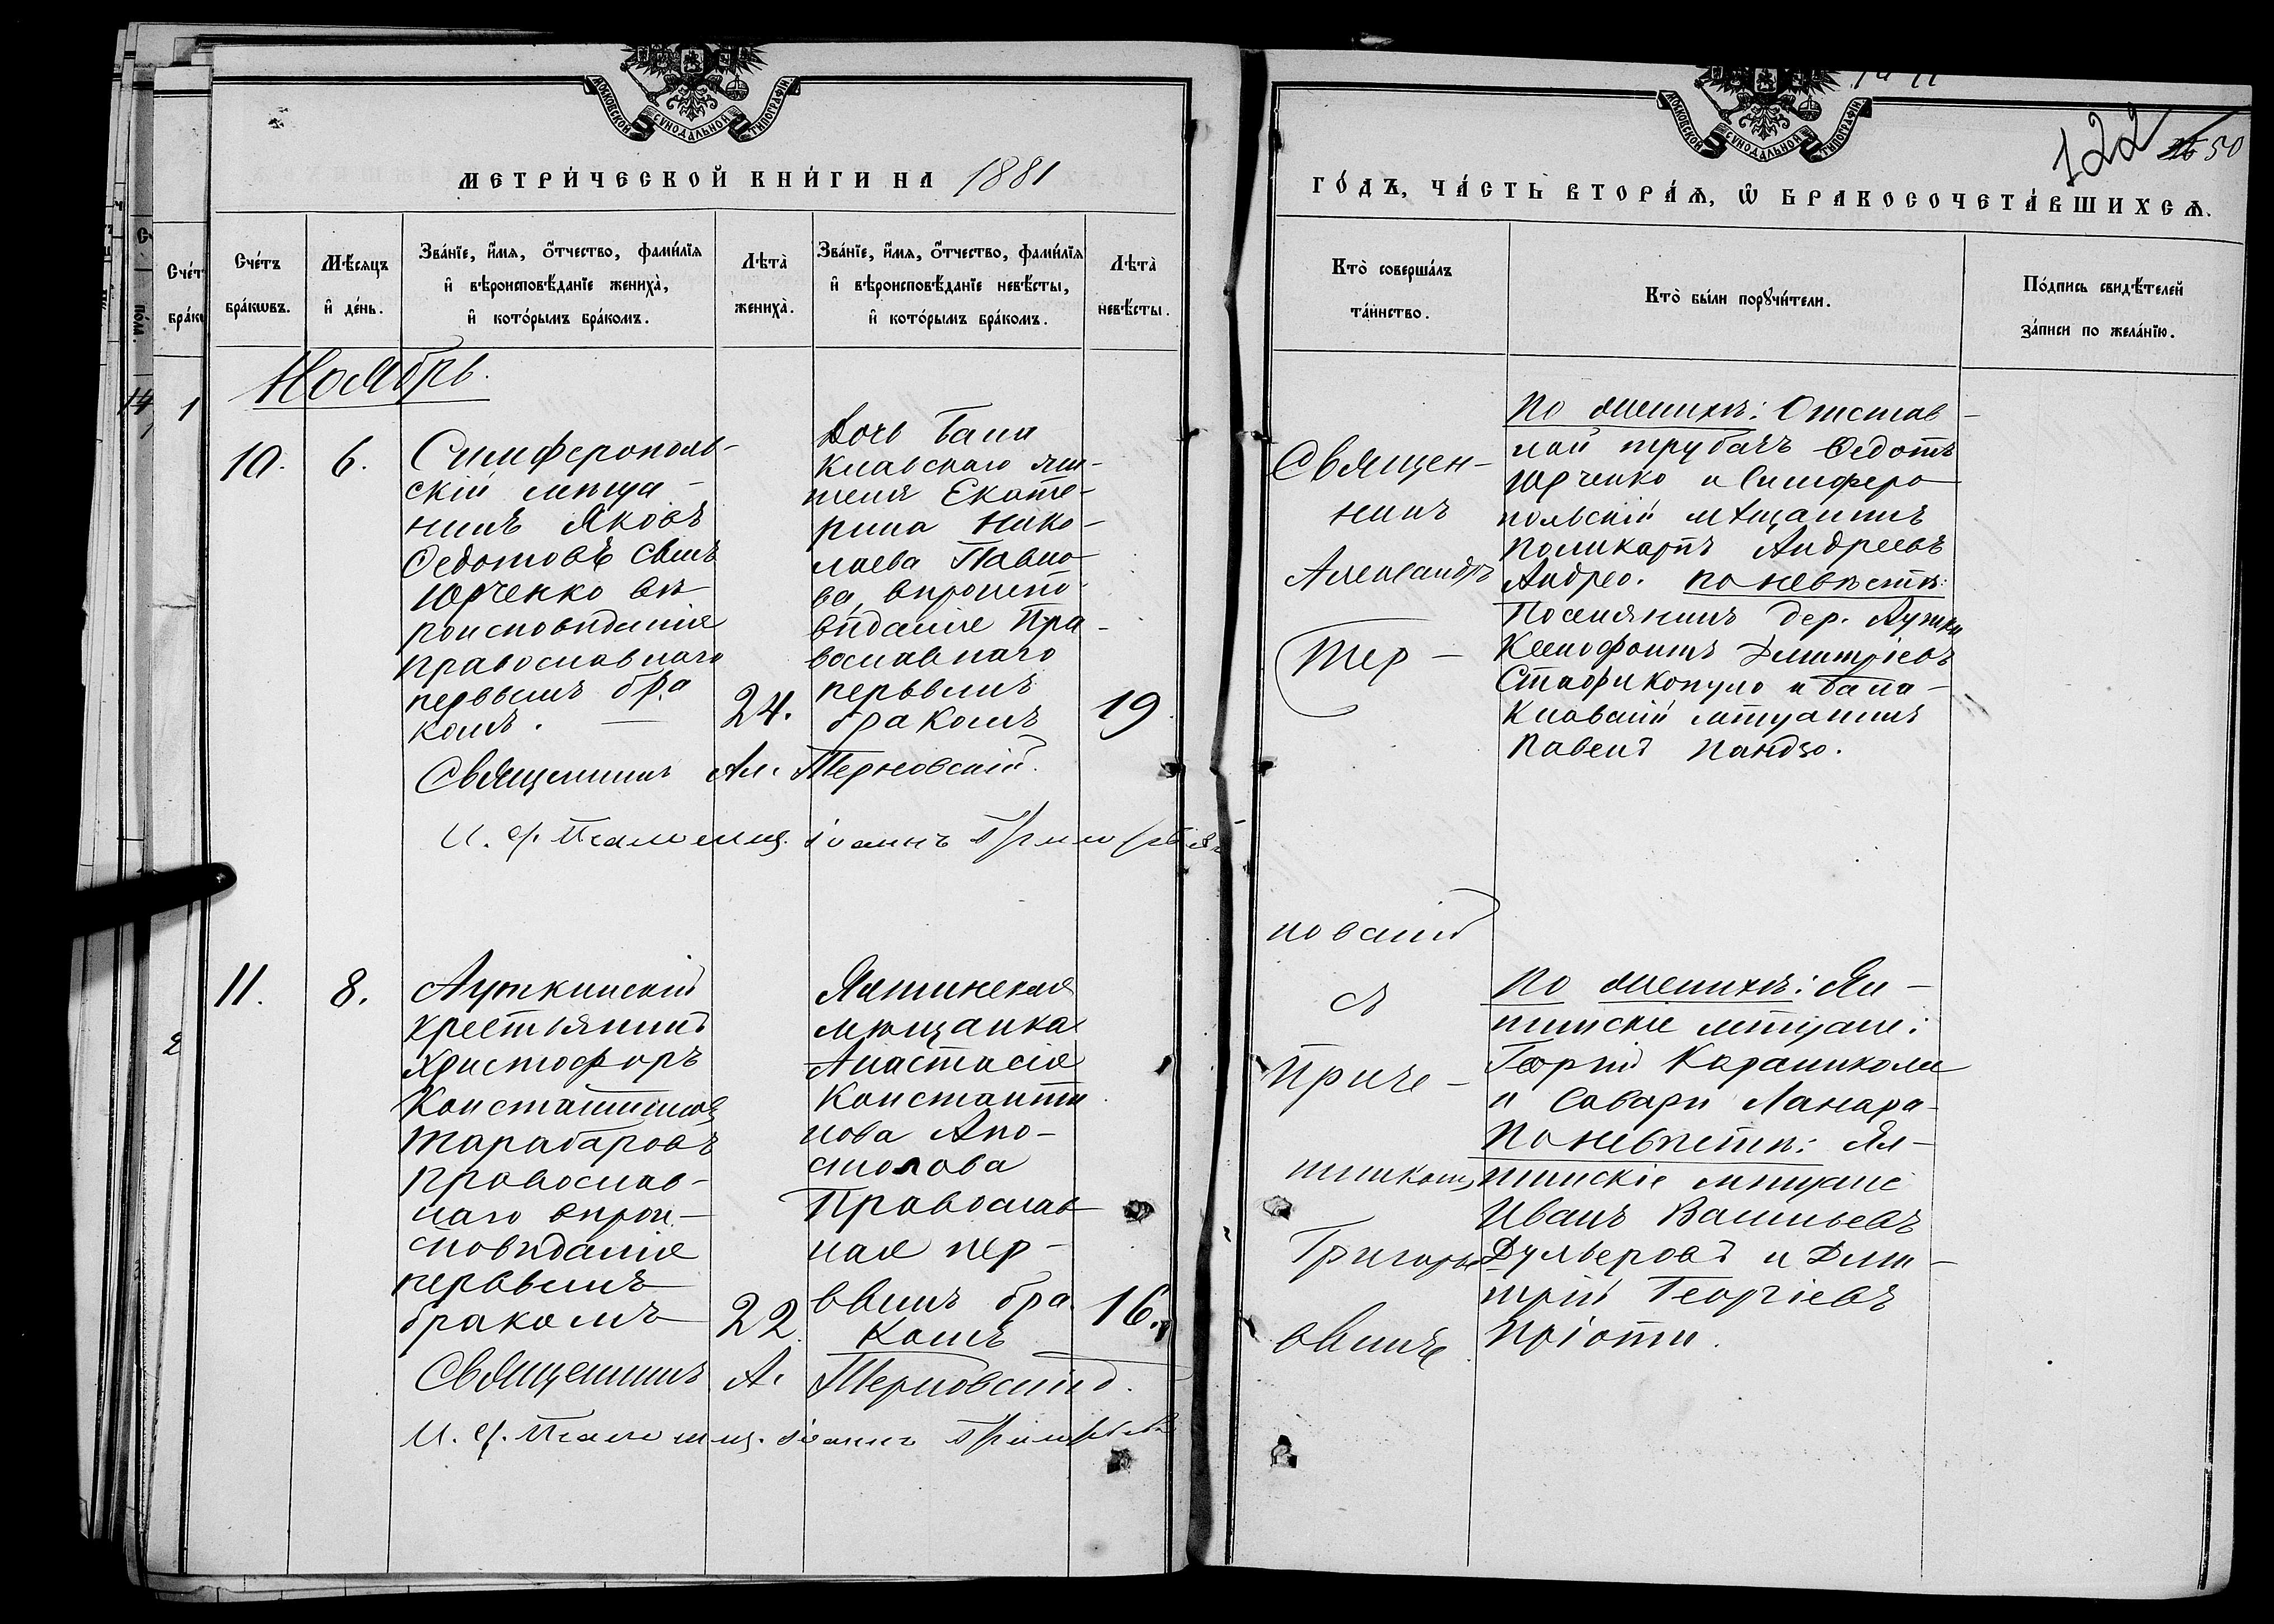 МОСКОВСКОЙ СУНОДАЛЬНОЙ ТИПОГРАФІИ.
МЕТРИ́ЧЕСКОЙ КНИ́ГИ НА 1881
Сче́тъ бра́кѡвъ.
Мѣ́сяцъ и҆ де́нь.
Зва́нїе, и҆́мя, ѻ҆́тчество, фами́лїя
и҆ вѣроисповѣ́данїе жениха̀,
и҆ кото́рымъ бра́комъ.
Лѣта̀ жениха̀.
Зва́нїе, и҆́мя, ѻ҆́тчество, фами́лїя
и҆ вѣроисповѣ́данїе невѣ́сты,
и҆ кото́рымъ бра́комъ.
Лѣта̀ невѣ́сты.
Ноябрь.
10.
6.
Симферополь-
скій мѣща-
нинъ Яковъ
Ѳедотовъ сынъ
Юрченко вѣ-
роисповѣданія
православнаго
первымъ бра
комъ.
24.
Дочь Бала
клавскаго жи-
теля Екате-
рина Нико-
лаева Павло-
ва, вѣроиспо-
вѣданія Пра-
вославнаго
первымъ
бракомъ
19
Священникъ Ал. Терновскій.
И. д. Псаломщ. Іоаннъ
11.
8.
Ауткинскій
крестьянинъ
Христофоръ
Константиновъ
Тарабаровъ
Православ-
наго вѣрои-
сповѣданія
первымъ
бракомъ
22.
Ялтинская
мѣщанка
Анастасія
Константи
нова Апо-
столова
Православ-
ная пер-
вымъ бра
комъ
16.
Священникъ А. Терновскій.
И. д. Псаломщ. Іоаннъ
МОСКОВСКОЙ СУНОДАЛЬНОЙ ТИПОГРАФІИ.
122
50
ГО́ДЪ, ЧА́СТЬ ВТОРА́Ѧ, Ѡ҆ БРАКОСОЧЕТА́ВШИХСѦ.
Кто̀ соверша́лъ
та́инство.
Кто̀ бы́ли порꙋчи́тели.
По́дпись свидѣ́телей
за́писи по жела́нїю.
Священ-
никъ
Александръ
Тер-
новскій
съ
Приче-
тникомъ
Григорье
вымъ
По женихѣ: Отстав-
ной трубачъ Ѳедотъ
Юрченко и Симферо
польскій мѣщанинъ
Поликарпъ Андреевъ
Андрео. По невѣстѣ:
Поселянинъ дер. Аутки
Ксенофонтъ Дмитріевъ
Стафикопуло и Бала-
клавскій мѣщанинъ
Павелъ Пандзо.
По женихѣ: Ял-
тинскіе мѣщане:
Георгій Караниколи
и Савари Ланара-
По невѣстѣ: Ял-
тинскіе мѣщане
Иванъ Васильевъ
Дульверовъ и Дми-
трій Георгіевъ
Пріоти.